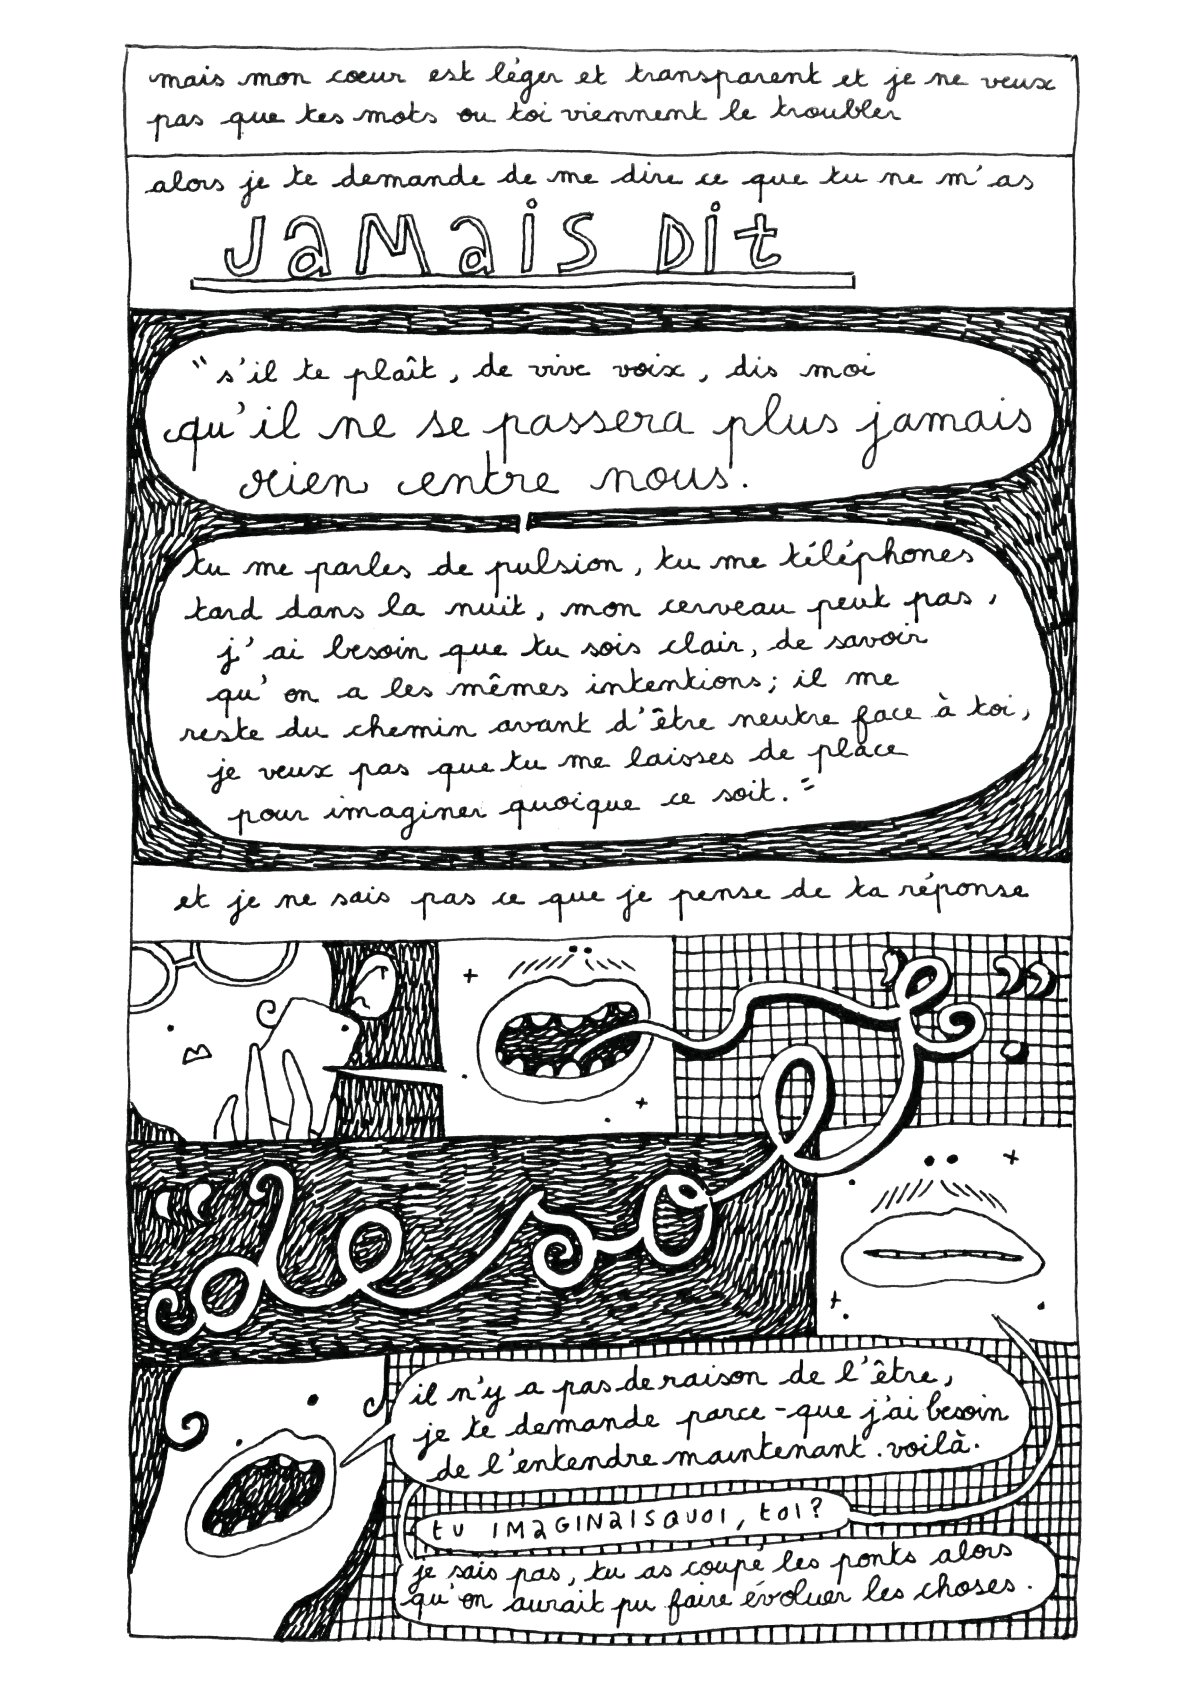 mais mon cœur est léger et transparent et je ne veux
pas que tes mots ou toi viennent le troubler
alors je te demande de me dire ce que tu ne m'as
JaMais Dit
"s'il te plaît, de vive voix, dis moi
qu'il ne se passera plus jamais
rien entre nous.
tu me parles de pulsion, tu me téléphones
tard dans la nuit, mon cerveau peut pas,
j'ai besoin que tu sois clair, de savoir
qu'on a les mêmes intentions; il me
reste du chemin avant d'être neutre face à toi,
je veux pas que tu me laisses de place
pour imaginer quoique ce soit."
et je ne sais pas ce que je pense de ta réponse
"désolé."
il n'y a pas de raison de l'être,
je te demande parce-que j'ai besoin
de l'entendre maintenant. voilà.
tu iMaGiNaisQuoi, toi?
je sais pas, tu as coupé les ponts alors
qu'on aurait pu faire évoluer les choses.